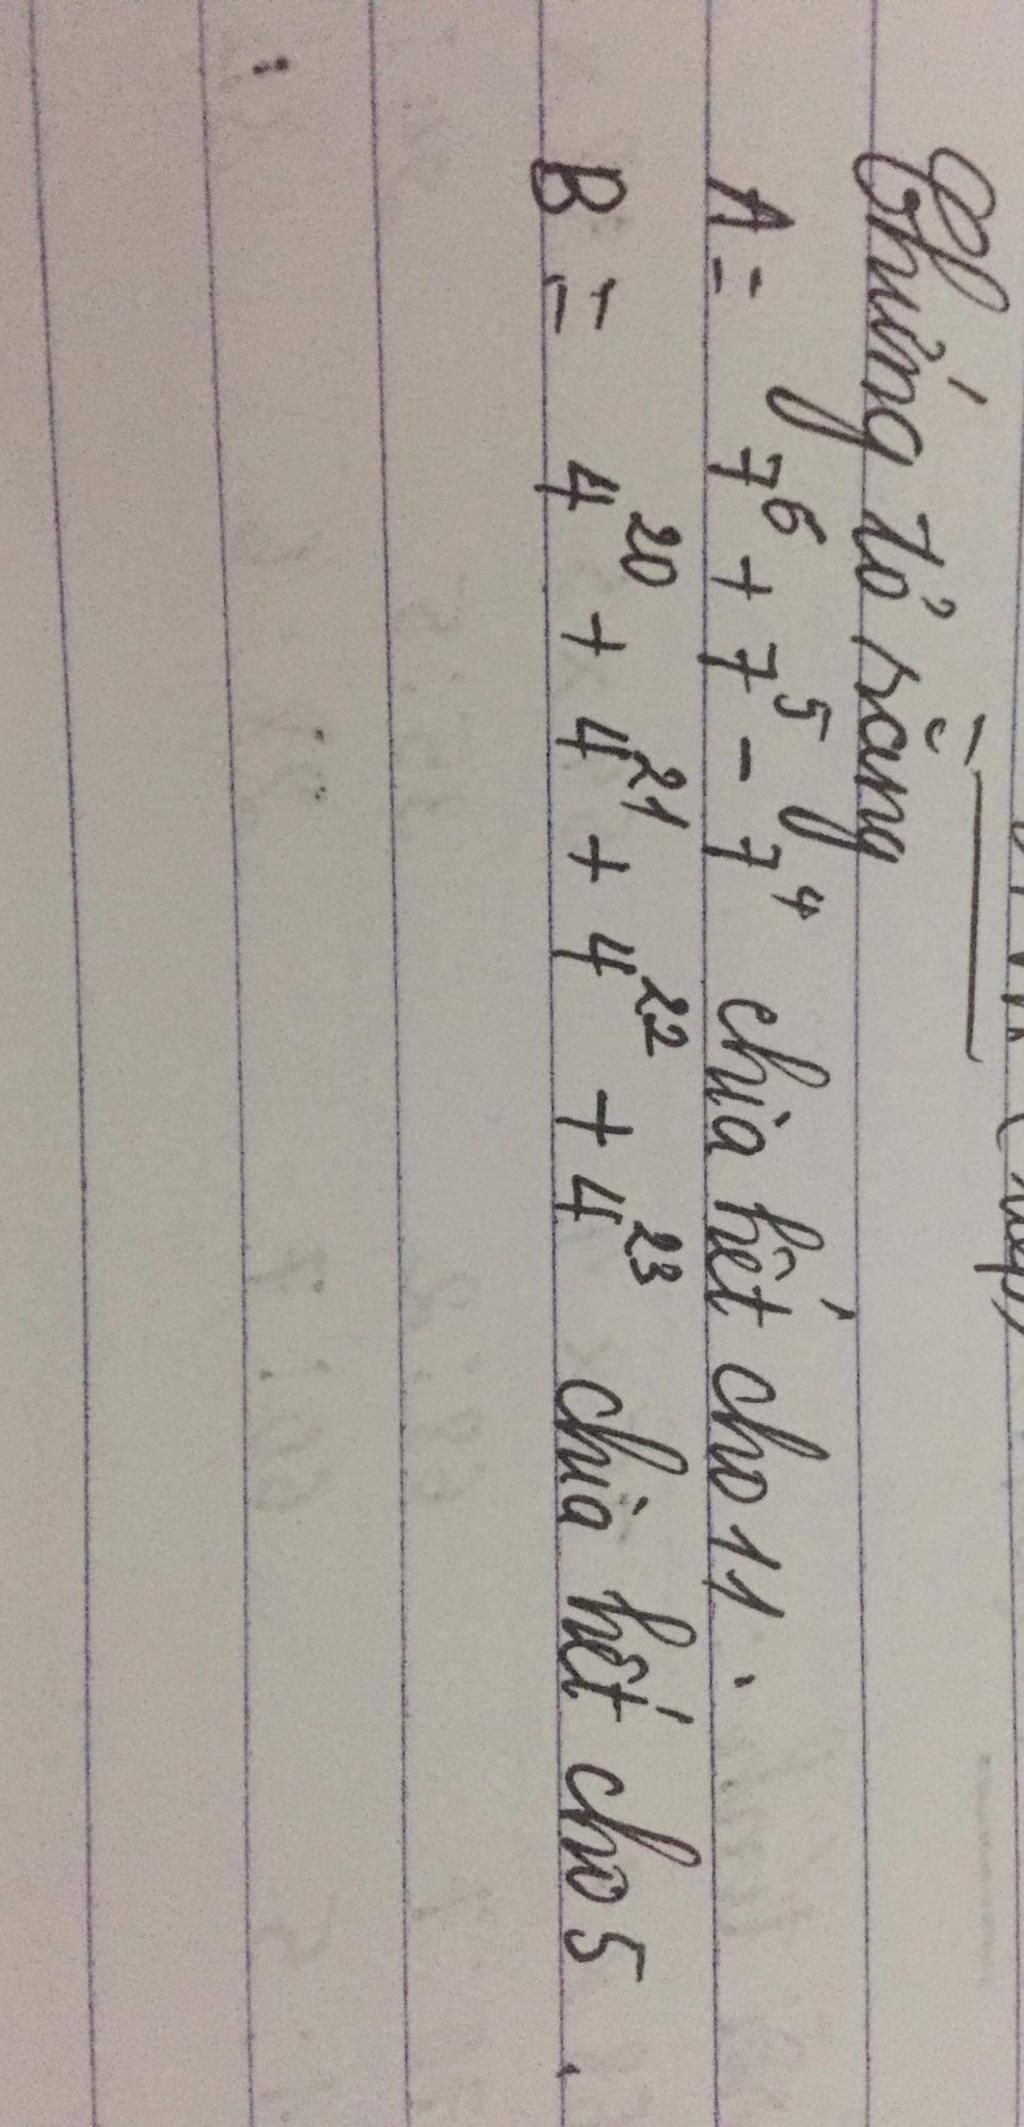 Chứng tỏ rằng
A = 7⁶ + 7⁵ - 7⁴ chia hết cho 11.
B = 4²⁰ + 4²¹ + 4²² + 4²³ chia hết cho 5.